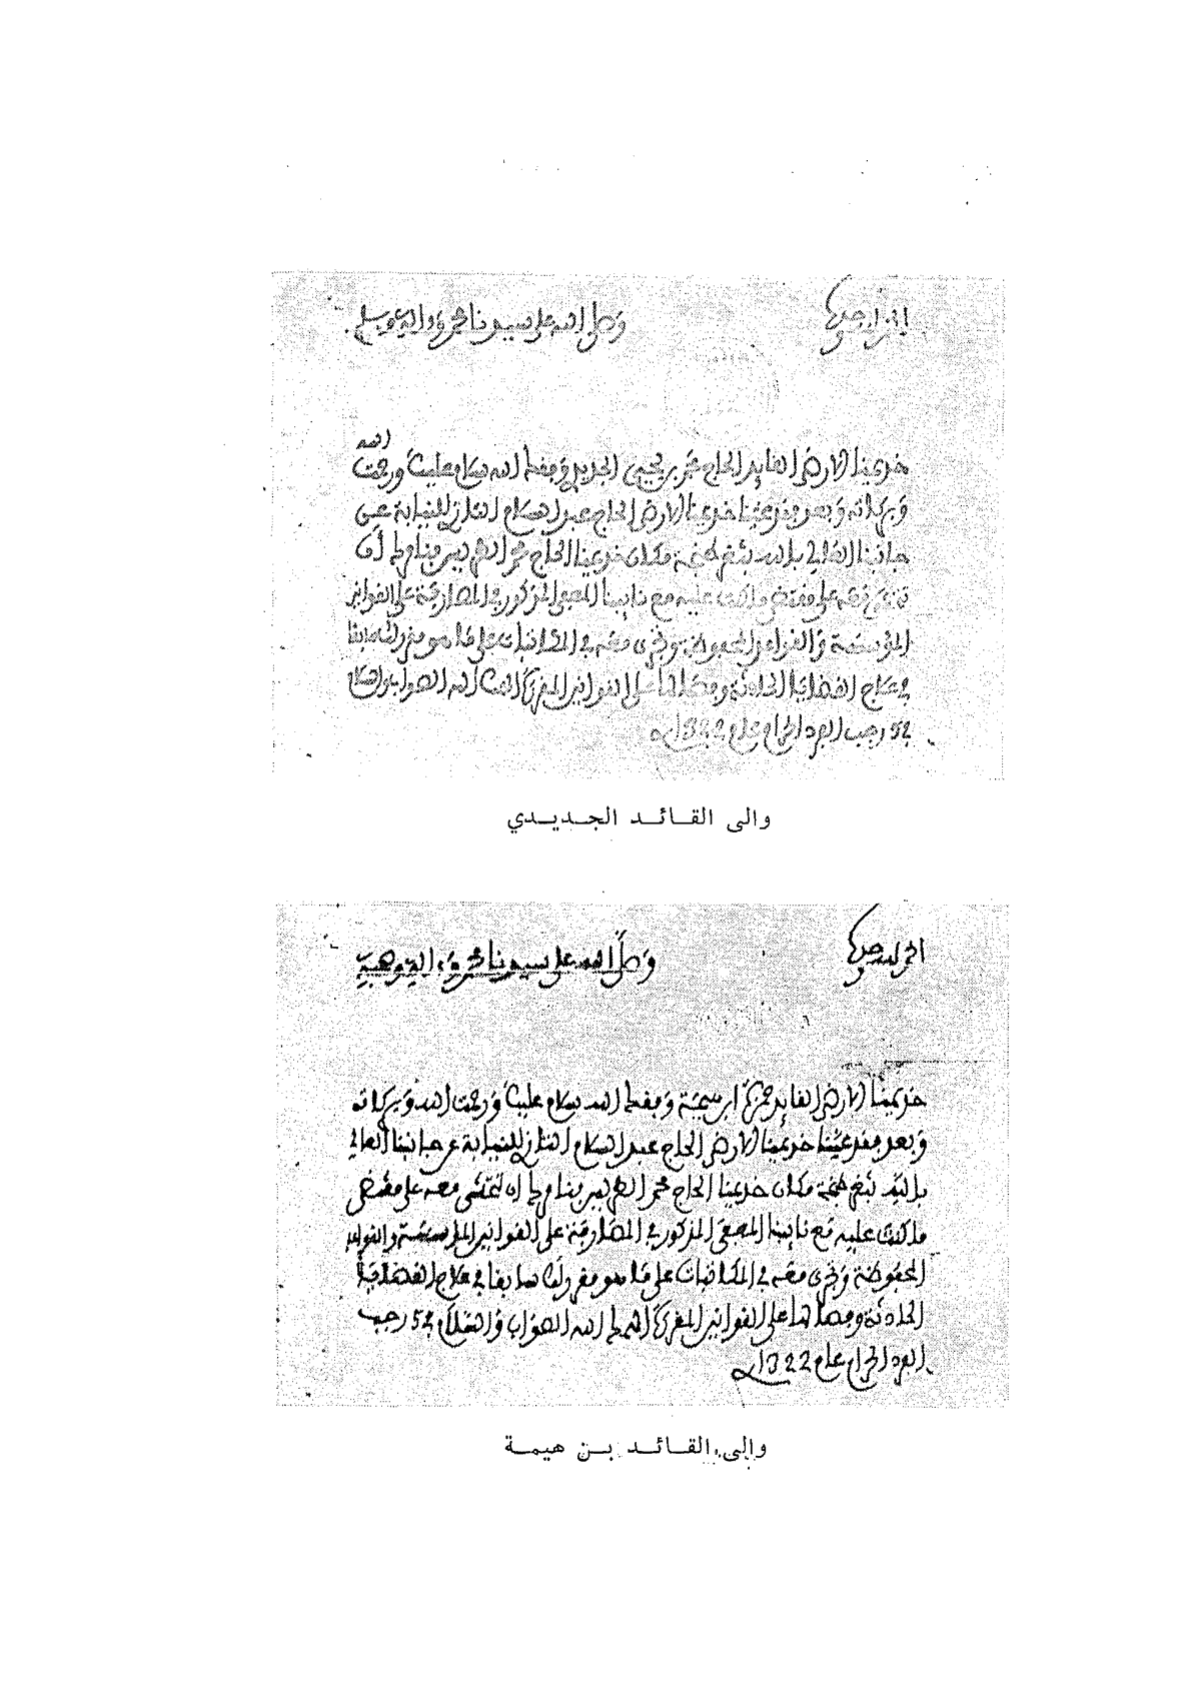 الحمد لله وحده
وصلى الله على سيدنا محمد وآله وصحبه وسلم
خديمنا الارضى القايد الحاج محمد بن يحيى الجديدي وفقك الله سلام عليك ورحمت الله
وبركاته وبعد فقد عينا خديمنا الارضى الحاج عبد السلام التازي للنيابة عن
جانبنا العالي بالله بثغر طنجة مكان خديمنا الحاج محمد الطريس فنامرك أن
تتمشى معه على مقتضى ما كنت عليه مع نايبنا المذكور في المصارفة على القوانين
المؤسسة والقواعد المحفوظة وتجري معه في المكاتبات على ما هو مقرر لك سابقا
في علاج القضايا الحادثة وفصالها على القوانين المقررة الهمك الله الصواب والسلام
في 25 رجب الفرد الحرام عام 1322
والى القائد الجديدي
الحمد لله وحده
وصلى الله على سيدنا محمد وآله وصحبه
خديمنا الارضى القايد حمزة ابن هيمة وفقك الله سلام عليك ورحمت الله وبركاته
وبعد فقد عينا خديمنا الارضى الحاج عبد السلام التازي للنيابة عن جانبنا العالي
بالله بثغر طنجة مكان خديمنا الحاج محمد الطريس فنامرك ان تتمشى معه على مقتضى
ما كنت عليه مع نايبنا المذكور في المصارفة على القوانين المؤسسة والقواعد
المحفوظة وتجري معه في المكاتبات على ما هو مقرر لك سابقا في علاج القضايا
الحادثة وفصالها على القوانين المقررة الهمك الله الصواب والسلام في 25 رجب
الفرد الحرام عام 1322
والى القائد بن هيمة